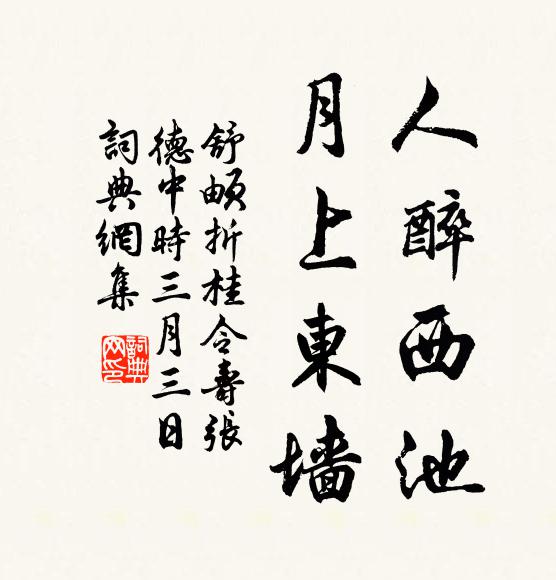 人醉西池
月上東墙
舒頔折桂令壽張
德中時三月三日
詞典網集
詞典網印